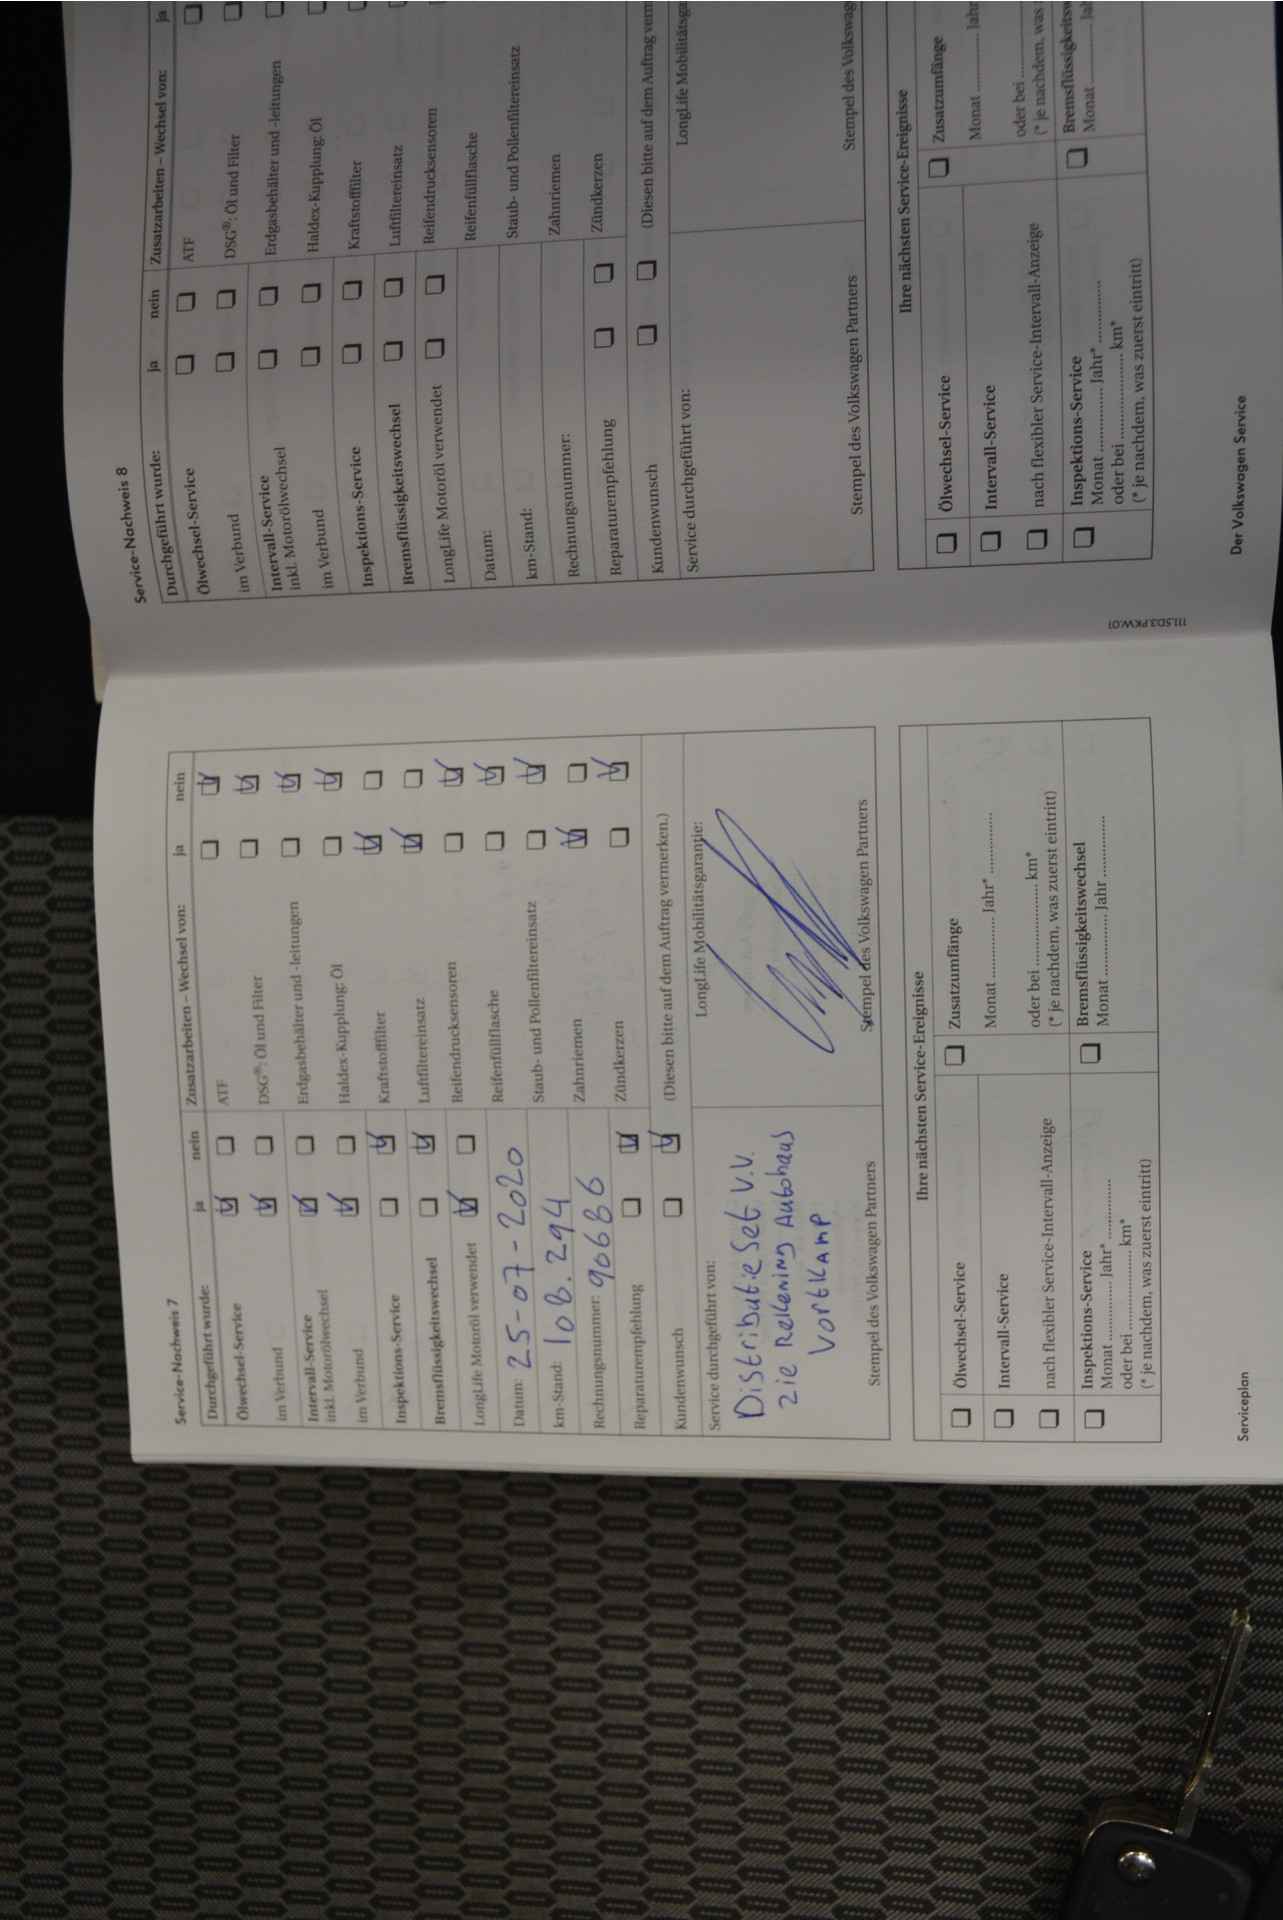 Service-Nachweis 7
Durchgeführt wurde: ja nein Zusatzarbeiten – Wechsel von: ja nein
Ölwechsel-Service ATF
im Verbund DSG®: Öl und Filter
Intervall-Service Erdgasbehälter und -leitungen
inkl. Motorölwechsel
im Verbund Haldex-Kupplung: Öl
Inspektions-Service Kraftstofffilter
Bremsflüssigkeitswechsel Luftfiltereinsatz
LongLife Motoröl verwendet Reifendrucksensoren
Datum: 25-07-2020 Reifenfüllflasche
km-Stand: 108.294 Staub- und Pollenfiltereinsatz
Rechnungsnummer: 90686 Zahnriemen
Reparaturempfehlung Zündkerzen
Kundenwunsch (Diesen bitte auf dem Auftrag vermerken.)
Service durchgeführt von: LongLife Mobilitätsgarantie:
Distributie Set V.V.
Zie Rekening Autohaus
Vortkamp
Stempel des Volkswagen Partners Stempel des Volkswagen Partners
Ihre nächsten Service-Ereignisse
Ölwechsel-Service Zusatzumfänge
Intervall-Service Monat ............... Jahr* ...............
nach flexibler Service-Intervall-Anzeige oder bei .................... km*
(* je nachdem, was zuerst eintritt)
Inspektions-Service Bremsflüssigkeitswechsel
Monat ............... Jahr* ............... Monat ............... Jahr ...............
oder bei .................... km*
(* je nachdem, was zuerst eintritt)
Serviceplan
Service-Nachweis 8
Durchgeführt wurde: ja nein Zusatzarbeiten – Wechsel von: ja
Ölwechsel-Service ATF
im Verbund DSG®: Öl und Filter
Intervall-Service Erdgasbehälter und -leitungen
inkl. Motorölwechsel
im Verbund Haldex-Kupplung: Öl
Inspektions-Service Kraftstofffilter
Bremsflüssigkeitswechsel Luftfiltereinsatz
LongLife Motoröl verwendet Reifendrucksensoren
Datum: Reifenfüllflasche
km-Stand: Staub- und Pollenfiltereinsatz
Rechnungsnummer: Zahnriemen
Reparaturempfehlung Zündkerzen
Kundenwunsch (Diesen bitte auf dem Auftrag verm
Service durchgeführt von: LongLife Mobilitätsga
Stempel des Volkswagen Partners Stempel des Volkswag
Ihre nächsten Service-Ereignisse
Ölwechsel-Service Zusatzumfänge
Intervall-Service Monat ............... Jahr
nach flexibler Service-Intervall-Anzeige oder bei ...............
(* je nachdem, was
Inspektions-Service Bremsflüssigkeitsw
Monat ............... Jahr* ............... Monat ............... Jah
oder bei .................... km*
(* je nachdem, was zuerst eintritt)
Der Volkswagen Service
111.5D3.PKW.01